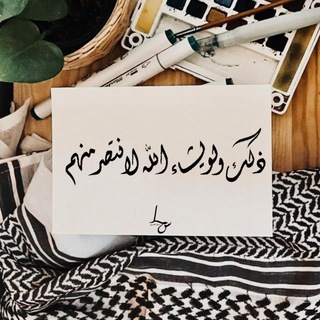 ذلك ولو يشاء الله لانتصر منهم